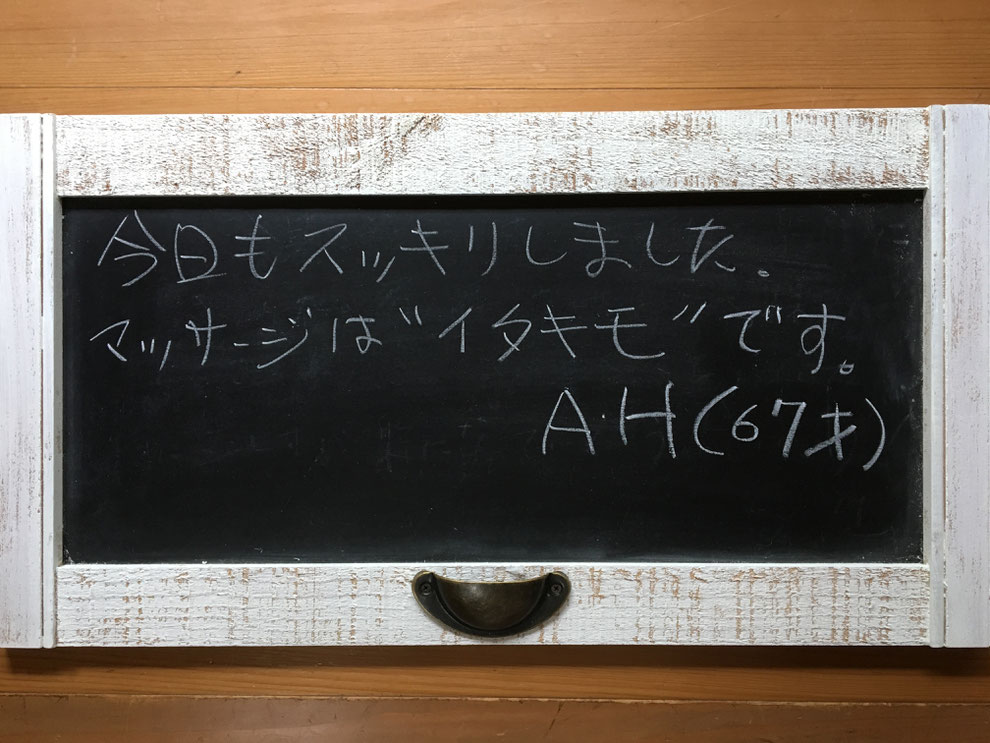 今日もスッキリしました。
マッサージは“イタキモ”です。
A・H(67才)